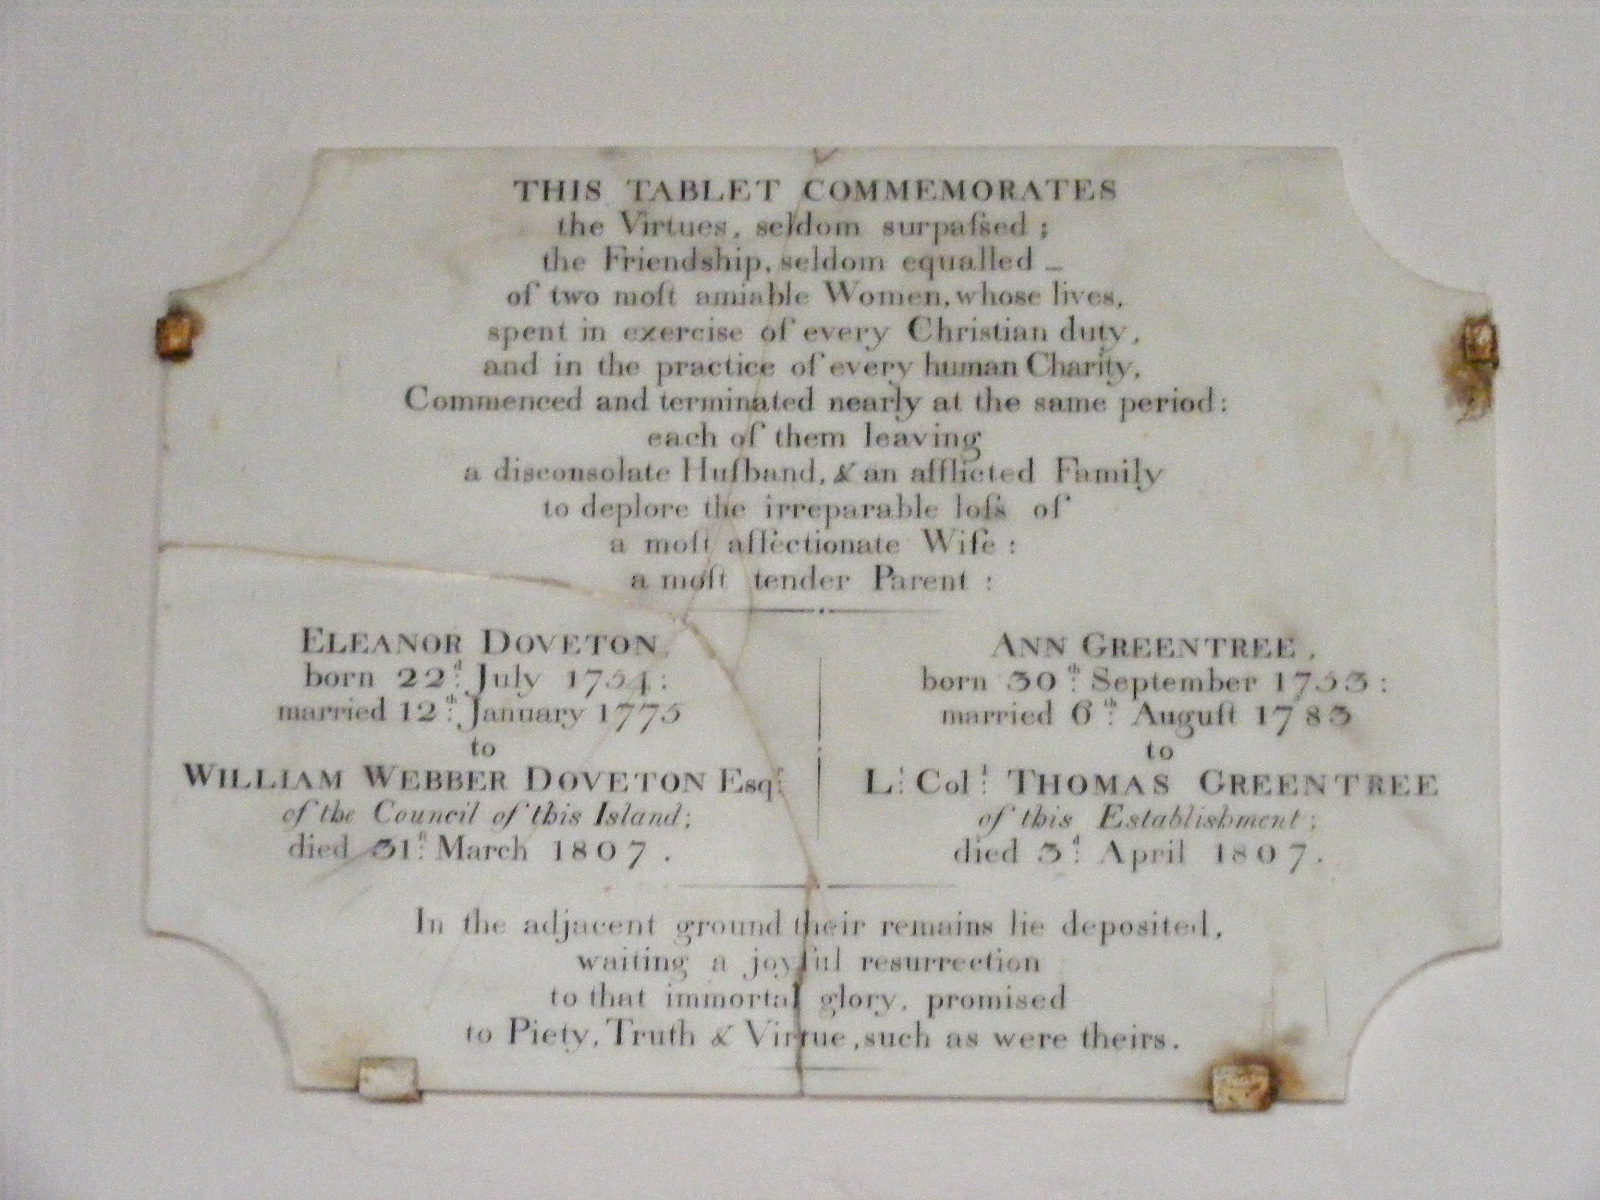 THIS TABLET COMMEMORATES
the Virtues, seldom surpaſsed;
the Friendship, seldom equalled _
of two moſt amiable Women, whose lives,
spent in exercise of every Christian duty,
and in the practice of every human Charity,
Commenced and terminated nearly at the same period:
each of them leaving
a disconsolate Huſband, & an afflicted Family
to deplore the irreparable loſs of
a moſt affectionate Wife:
a moſt tender Parent:
ELEANOR DOVETON,
born 22d July 1754:
married 12th January 1775
to
WILLIAM WEBBER DOVETON Esqr
of the Council of this Island;
died 31st March 1807.
ANN GREENTREE,
born 30th September 1753:
married 6th Auguſt 1783
to
Lt Coll THOMAS GREENTREE
of this Establishment;
died 3d April 1807.
In the adjacent ground their remains lie deposited,
waiting a joyful resurrection
to that immortal glory, promised
to Piety, Truth & Virtue, such as were theirs.